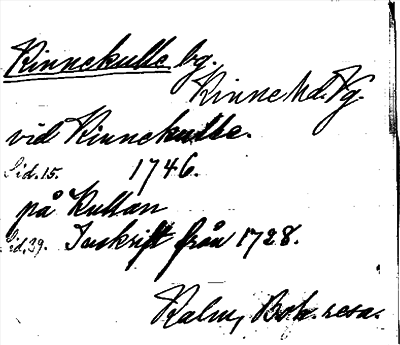 Kinnekulle bg.
Kinne Hd. Vg.
vid Kinnekulle.
Sid. 15. 1746.
på Kullan
Sid. 39. Inskrift från 1728.
Kalm, Boh. resa.